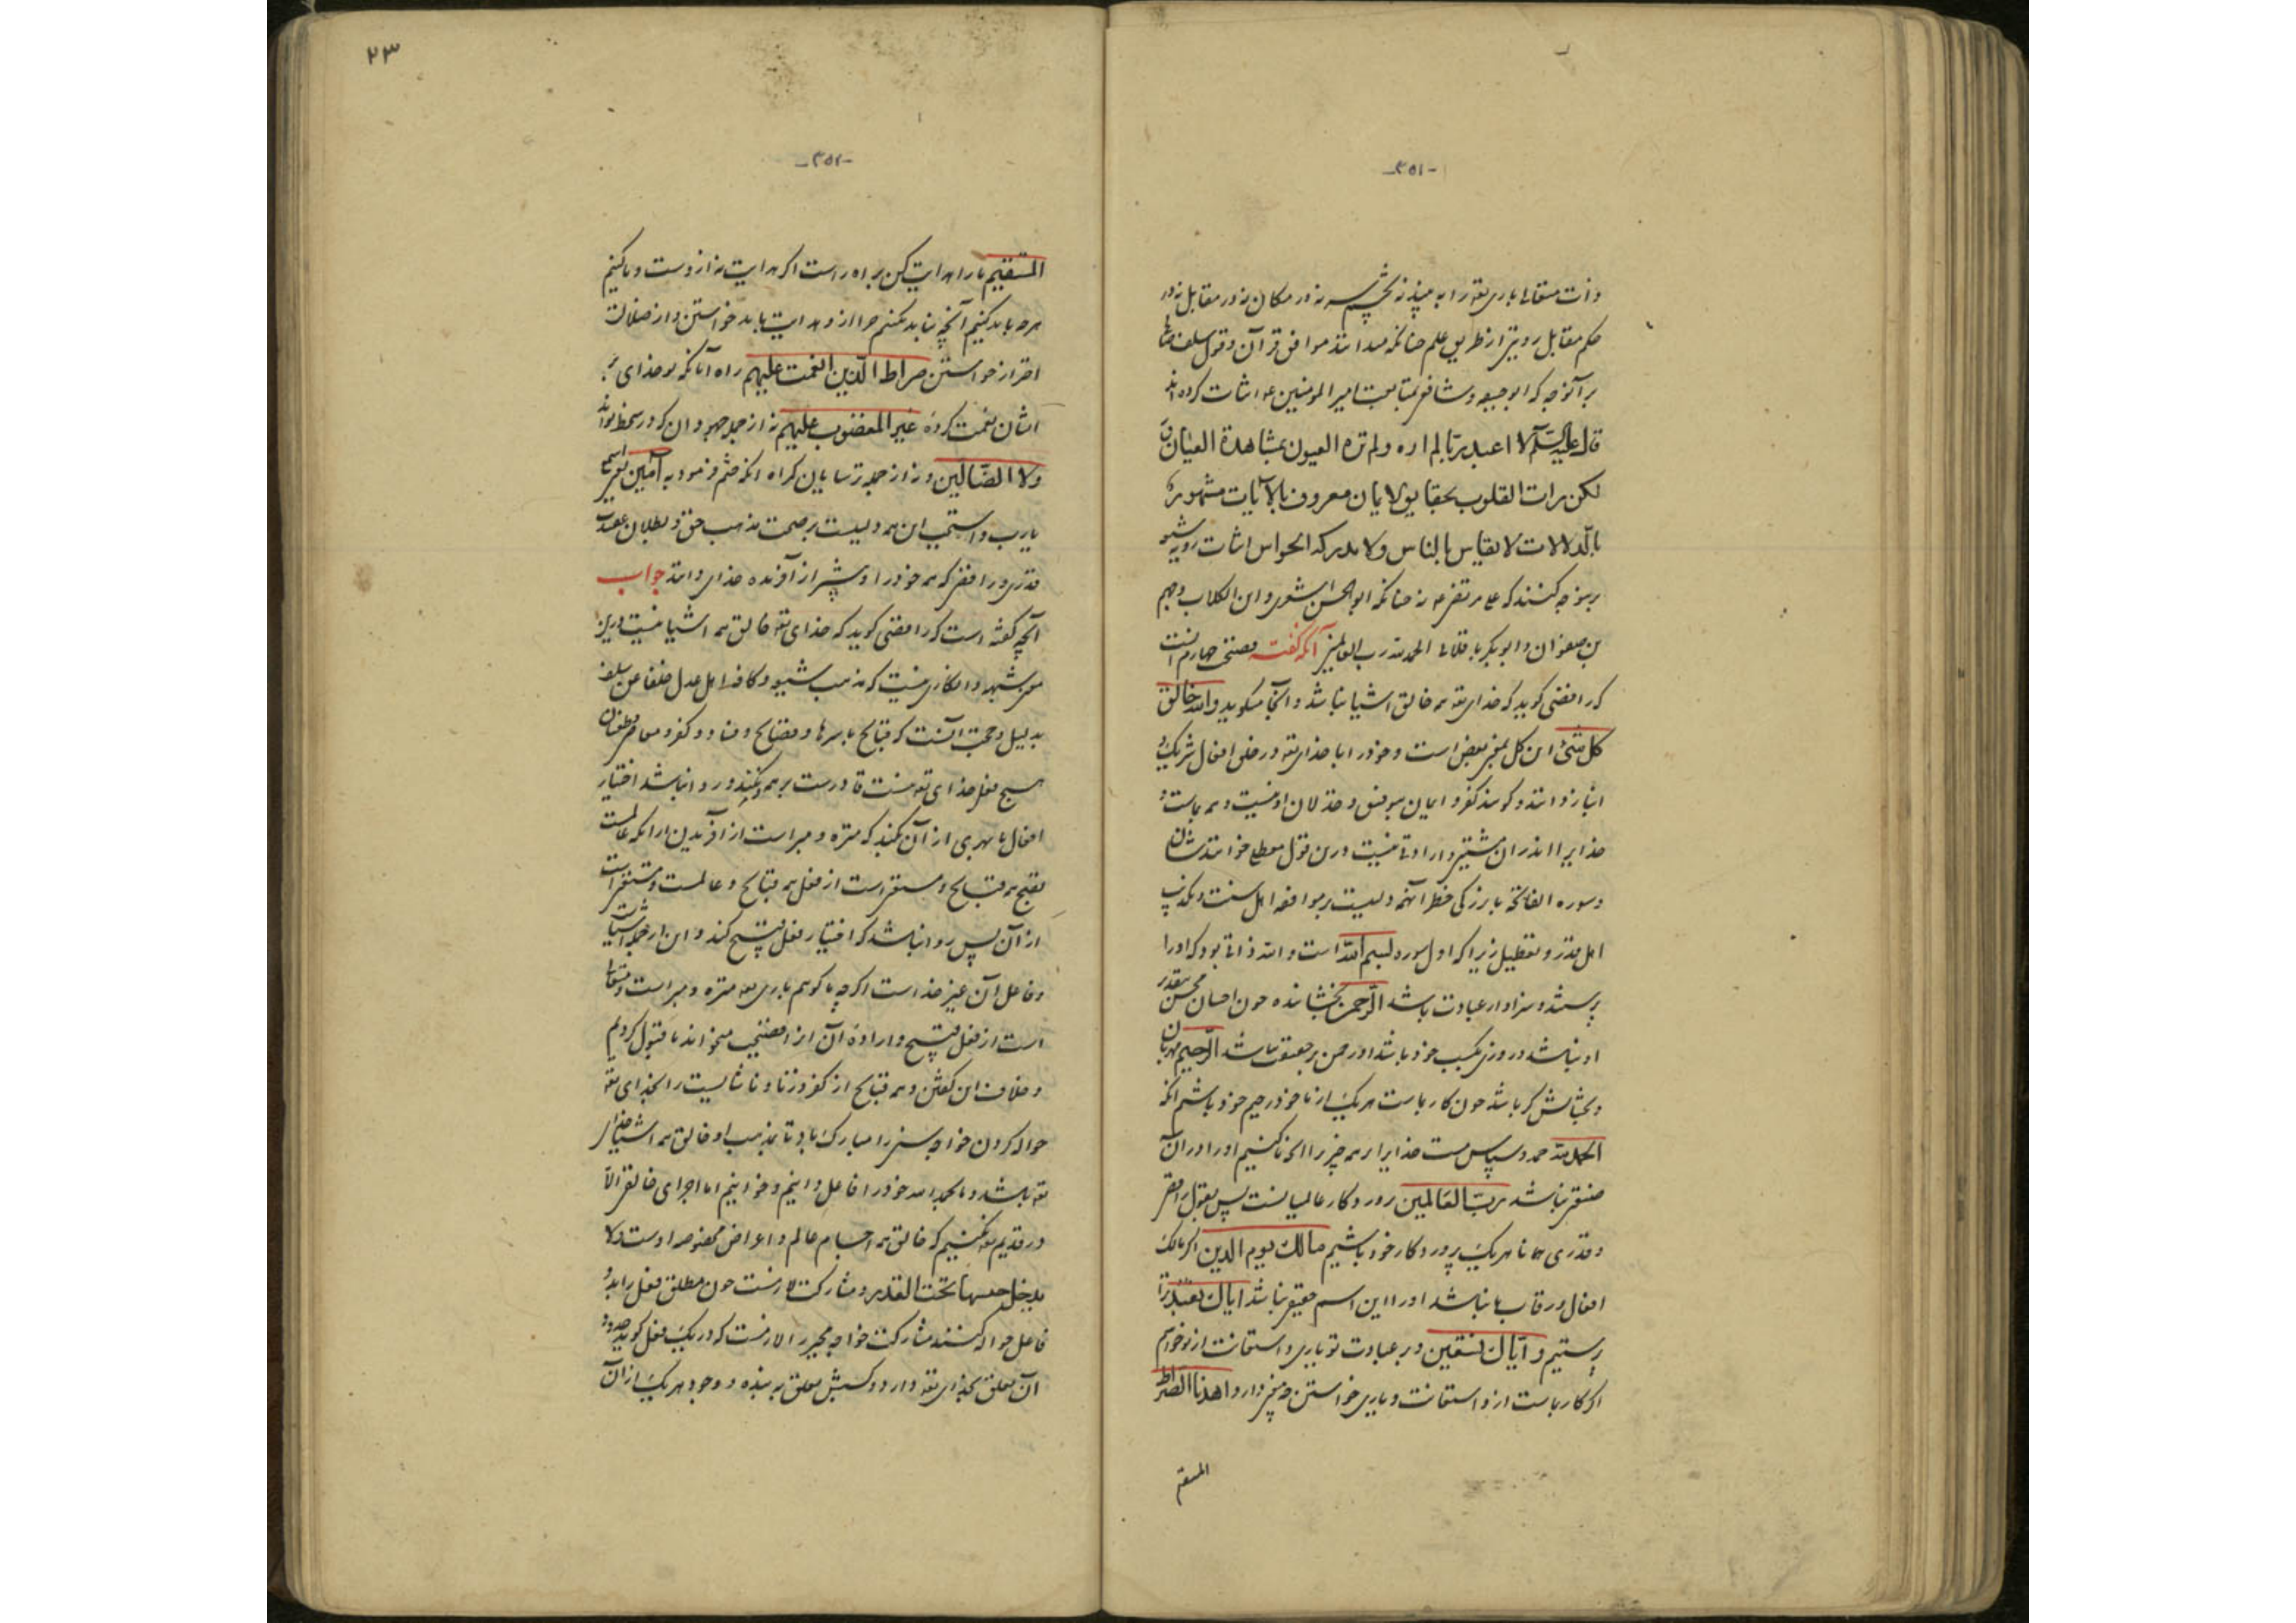 -۳۵۱-
وذات متعالی باری تعه را به بیند نه بچشم سر نه در مکان نه در مقابل نه در
حکم مقابل رویتی از طریق علم چنانکه میدانند موافق قرآن و قول سلف
بر آنوجه که ابوحنیفه و شافعی بمتابعت امیر المومنین ع اثبات کرده اند
قال علیه السلم لا اعبد ربا لم اره ولم تره العیون بمشاهدة العیان
لکن رات القلوب بحقایق الایمان معروف بالآیات مشهور
بالدلالات لا یقاس بالناس ولا یدرکه الحواس اثبات رویت
برین وجه کنند که علی مرتضی ع نه چنانکه ابوالحسن اشعری و ابن الکلاب و جهم
بن صفوان و ابوبکر باقلانی الحمد لله رب العالمین آنکه گفته فضیحت چهارم آنست
که رافضی کوید که خدای تعه همه خالق اشیا نباشد و آنجا میکوید والله خالق
کل شئ این کل بمعنی بعض است و خود را با خدای تعه در خلق افعال شریک و
انباز دانند و کویند کفر و ایمان بتوفیق و خذلان او نیست و همه بماست و
خدایرا اندران مشیتی و ارادتی نیست و درین قول معطله خوانندشان
و سوره الفاتحه با بزرکی خطر آنهمه دلیلست بر موافقه اهل سنت و تکذیب
اهل قدر و تعطیل زیرا که اول سوره بسم الله است و الله ذاتی بود که او را
پرستند و سزاوار عبادت باشد الرحمن بخشاینده چون احسان محسن بتقدیر
او نباشد و روزی بکسب خود باشد او رحمن بر حقیقت نباشد الرحیم مهربان
و بخشایش کر باشد چون کار بماست هر یک از ما خود رحیم خود باشیم آنکه
الحمد لله حمد و سپاس مست خدایرا بر همه چیز را آنچه ما کنیم او را در آن
صنعی نباشد رب العالمین پروردکار عالمیانست پس بقول رافضی
و قدری همانا هر یک پروردکار خود باشیم مالک یوم الدین اکر مالک
افعال و رقاب ما نباشد او را این اسم حقیقی نباشد ایاک نعبد ترا
پرستیم و ایاک نستعین و بر عبادت تو یاری و استعانت از تو خواهیم
اکر کار بماست ازو استعانت و یاری خواستن چه معنی دارد اهدنا الصراط
المستقیم
۲۳
-۳۵۲-
المستقیم ما را هدایت کن براه راست اکر هدایت نه ازوست و ما کنیم
هرچه باید کنیم آنچه نباید نکنیم چرا ازو هدایت باید خواستن و از ضلالت
احتراز خواستن صراط الذین انعمت علیهم راه آنانکه تو خدای بر
ایشان نعمت کردهٔ غیر المغضوب علیهم نه از جمله جهودان که در سخط تواند
ولا الضالین و نه از جمله ترسایان کمراه آنکه ختم فرمود به آمین
یارب و استجب این همه دلیلست بر صحت مذهب حق و بطلان عقیدت
قدری و رافضی که همه خود را و پیش از آفریده خدای دانند جواب
آنچه کفته است که رافضی کوید که خدای تعه خالق همه اشیا نیست درین
معنی شبهه و انکاری نیست که مذهب شیعه و کافه اهل عدل خلفا عن سلف
بدلیل و حجت آنست که قبایح باسرها و فضایح و فساد و کفر و معاصی
هیچ فعل خدای تعه نیست قادرست بر همه و نکند و روا نباشد اختیار
افعال ما مهری از آن کند که منزه و مبراست از آفریدن از آنکه عالمست
بقبح همه قبایح و مستغنی است از فعل همه قبایح و عالمست و مستغنی است
از آن پس روا نباشد که اختیار فعل قبیح کند و این از جمله اشیاست
و فاعل آن غیر خداست اکر چه ما کوییم باری تعه منزه و مبراست و متعالی
است از فعل قبیح و ارادهٔ آن از افضیحت میخواند ما قبول کردیم
و خلاف این کفتن و همه قبایح از کفر و زنا و ناشایست را بخدای تعه
حواله کردن خواجه سنی را مبارک باد تا بمذهب او خالق همه اشیا خدای
تعه باشد و ما بحمد الله خود را فاعل دانیم و خوانیم اما اجرای خالقی الا
در قدیم تعه نکنیم که خالق همه اجسام عالم و اعراض مخصوصه اوست ولا
یدخل جنسها تحت القدیر و مشارکت لازم نیست چون مطلق فعل را بدو
فاعل حواله کنند مشارکت خواجه مجبر را لازمست که در یک فعل کوید حدوث
آن تعلق بخدای تعه دارد و کسبش تعلق به بنده و وجود هر یک از آن